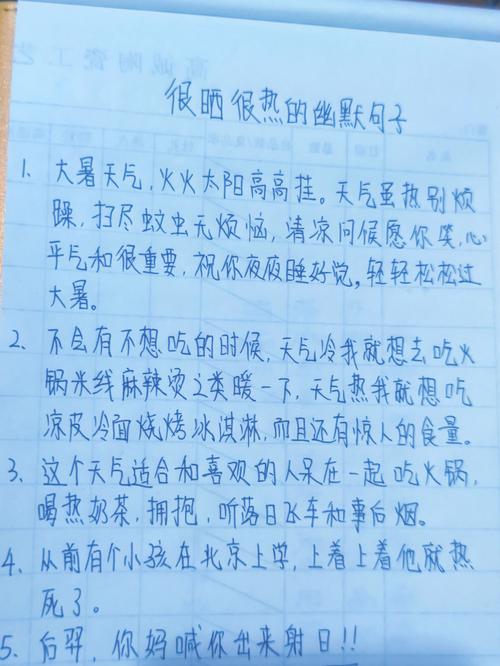 很晒很热的幽默句子
1、大暑天气，火火太阳高高挂。天气虽热别烦
躁，扫尽蚊虫无烦恼，清凉问候愿你笑，心
平气和很重要，祝你夜夜睡好觉，轻轻松松过
大暑。
2、不会有不想吃的时候，天气冷我就想去吃火
锅米线麻辣烫之类暖一下，天气热我就想吃
凉皮冷面烧烤冰淇淋，而且还有惊人的食量。
3、这个天气适合和喜观的人呆在一起吃火锅，
喝热奶茶，拥抱，听落日飞车和事后烟。
4、从前有个小孩在北京上学，上着上着他就热
死了。
5、后羿，你妈喊你出来射日!!